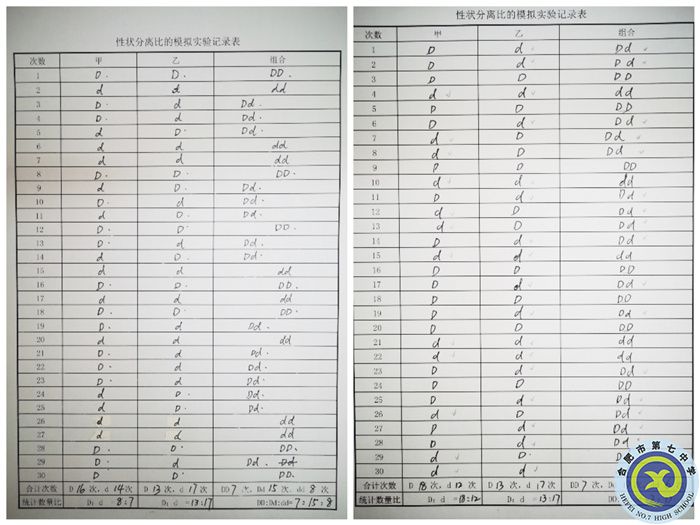 性状分离比的模拟实验记录表
次数 甲 乙 组合
1 D D DD
2 d d dd
3 D d Dd
4 D d Dd
5 d D Dd
6 d d dd
7 d d dd
8 D D DD
9 d D Dd
10 D d Dd
11 d D Dd
12 D D DD
13 D d Dd
14 d D Dd
15 d d dd
16 D D DD
17 d d dd
18 D D DD
19 D d Dd
20 d d dd
21 D d Dd
22 D d Dd
23 D d Dd
24 d D Dd
25 d D Dd
26 d d dd
27 d d dd
28 D D DD
29 D d Dd
30 D D DD
合计次数 D 16 次，d 14次 D 13 次，d 17 次 DD 7 次，Dd 15 次，dd 8 次
统计数量比 D:d =8:7 D:d =13:17 DD:Dd:dd=7:15:8
性状分离比的模拟实验记录表
次数 甲 乙 组合
1 D d Dd
2 D d Dd
3 D D DD
4 d d dd
5 D D DD
6 D d Dd
7 d D Dd
8 d D Dd
9 D D DD
10 d d dd
11 D d Dd
12 d D Dd
13 d D Dd
14 D d Dd
15 d d dd
16 D D DD
17 D d Dd
18 D D DD
19 D d Dd
20 D D DD
21 d d dd
22 d d dd
23 D d Dd
24 D D DD
25 D d Dd
26 d D Dd
27 D d Dd
28 D d Dd
29 d D
30 d d
合计次数 D 18 次，d 12 次 D 13 次，d 17 次 DD 7
统计数量比 D:d =18:12 D:d =13:17 DD:
合肥市第七中学
HEFEI NO.7 HIGH SCHOOL